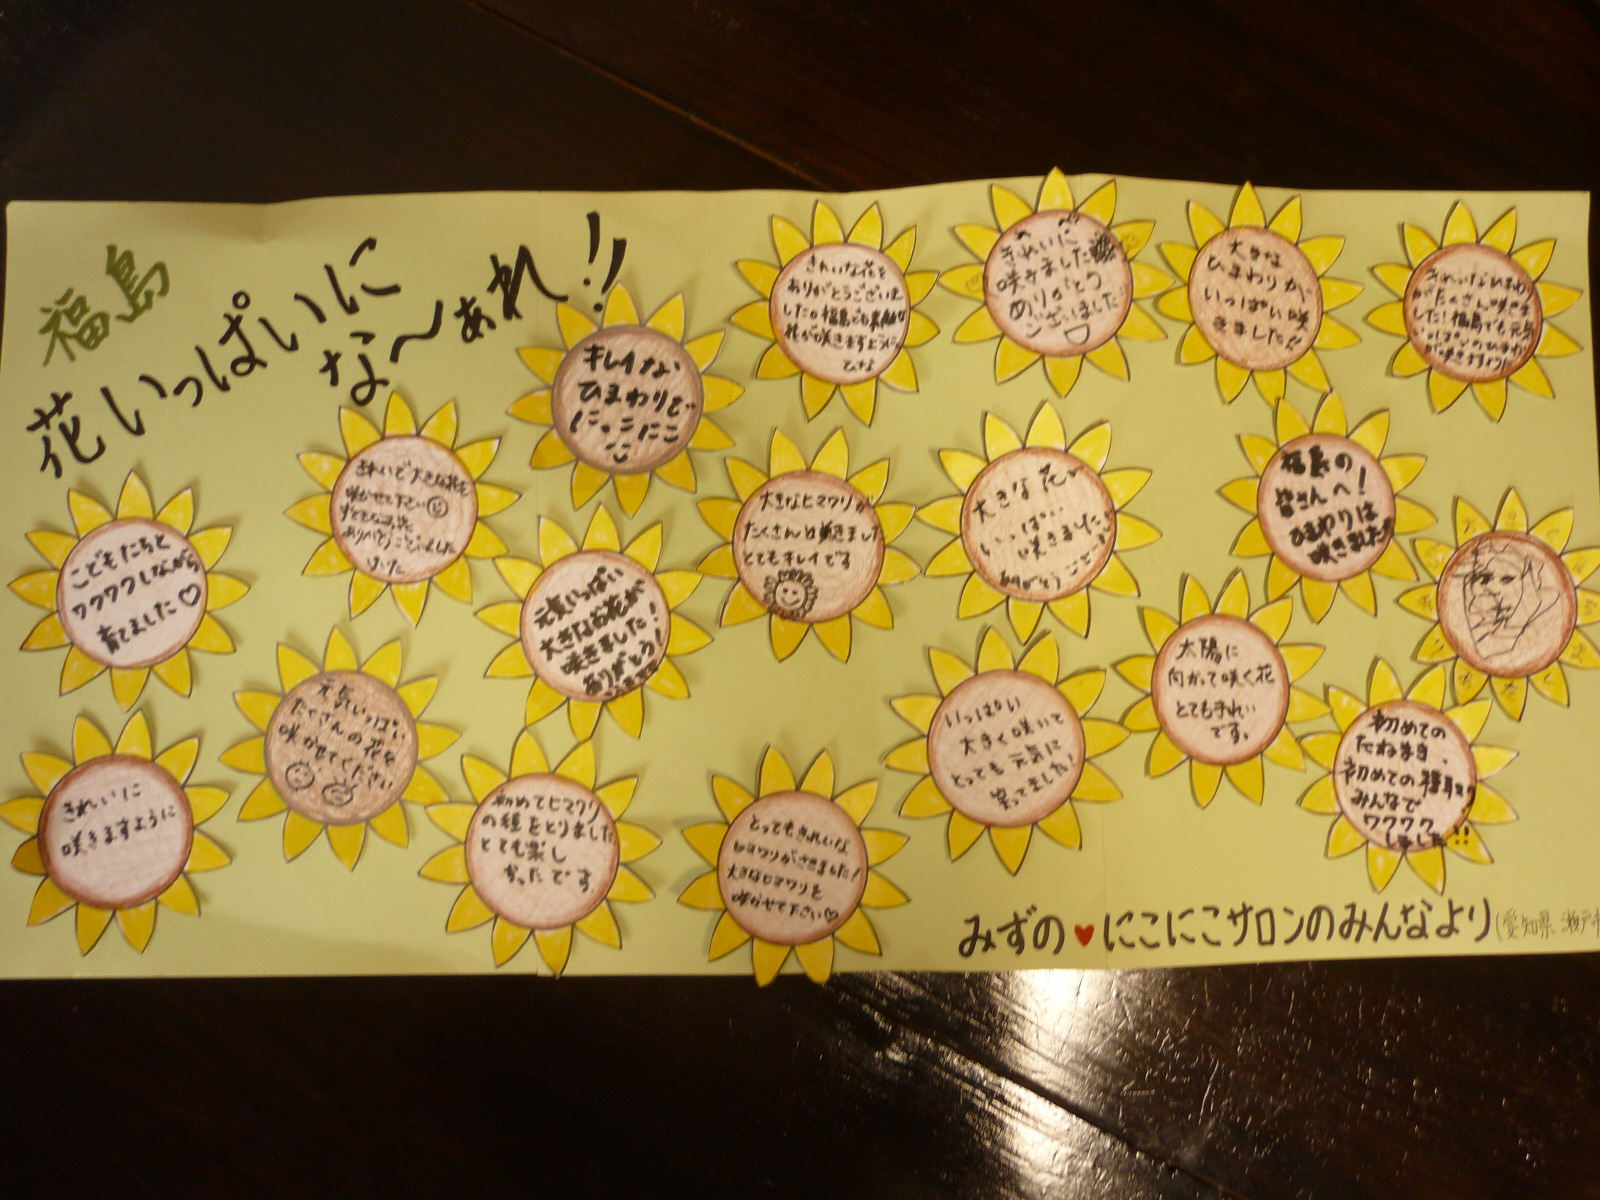 福島
花いっぱいに
な〜ぁれ!!
キレイな
ひまわりで
にっこにこ
きれいな花を
ありがとうございま
した。福島でも素敵な
花が咲きますように
ひな
きれいに
咲きました
ありがとう
ございました
大きな
ひまわりが、
いっぱい咲
きました!!
きれいなひまわり
がたくさん咲きま
した!福島でも元気
いっぱいのひまわり
が咲きますように
こどもたちと
ワクワクしながら
育てました♡
きれいで大きな花を
咲かせて下さい
すてきなお花
ありがとうございました
元気いっぱい
大きなお花が
咲きました!
ありがとう!
大きなヒマワリが
たくさん咲きました
とてもキレイです
大きな花が
いっぱい
咲きました。
ありがとうござい
福島の
皆さんへ!
ひまわりは
咲きました!!
きれいに
咲きますように
元気いっぱい
たくさんの花を
咲かせてください
初めてヒマワリ
の種をとりました
とても楽し
かったです。
とってもきれいな
ヒマワリがさきました!
大きなヒマワリを
咲かせて下さい♡
いっぱい
大きく咲いて
とっても元気に
笑ってました!
太陽に
向かって咲く花
とてもきれい
です。
初めての
たねまき、
初めての種取り
みんなで
ワクワク
しました!!
みずの♥にこにこサロンのみんなより(愛知県 瀬戸市